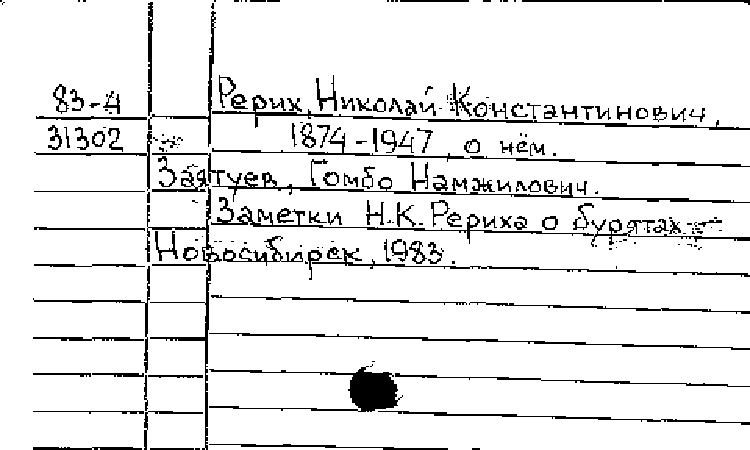 83-4 Рерих, Николай Константинович,
31302 1874-1947, о нём.
Заятуев, Гомбо Намжилович.
Заметки Н.К. Рериха о бурятах -
Новосибирск, 1983.